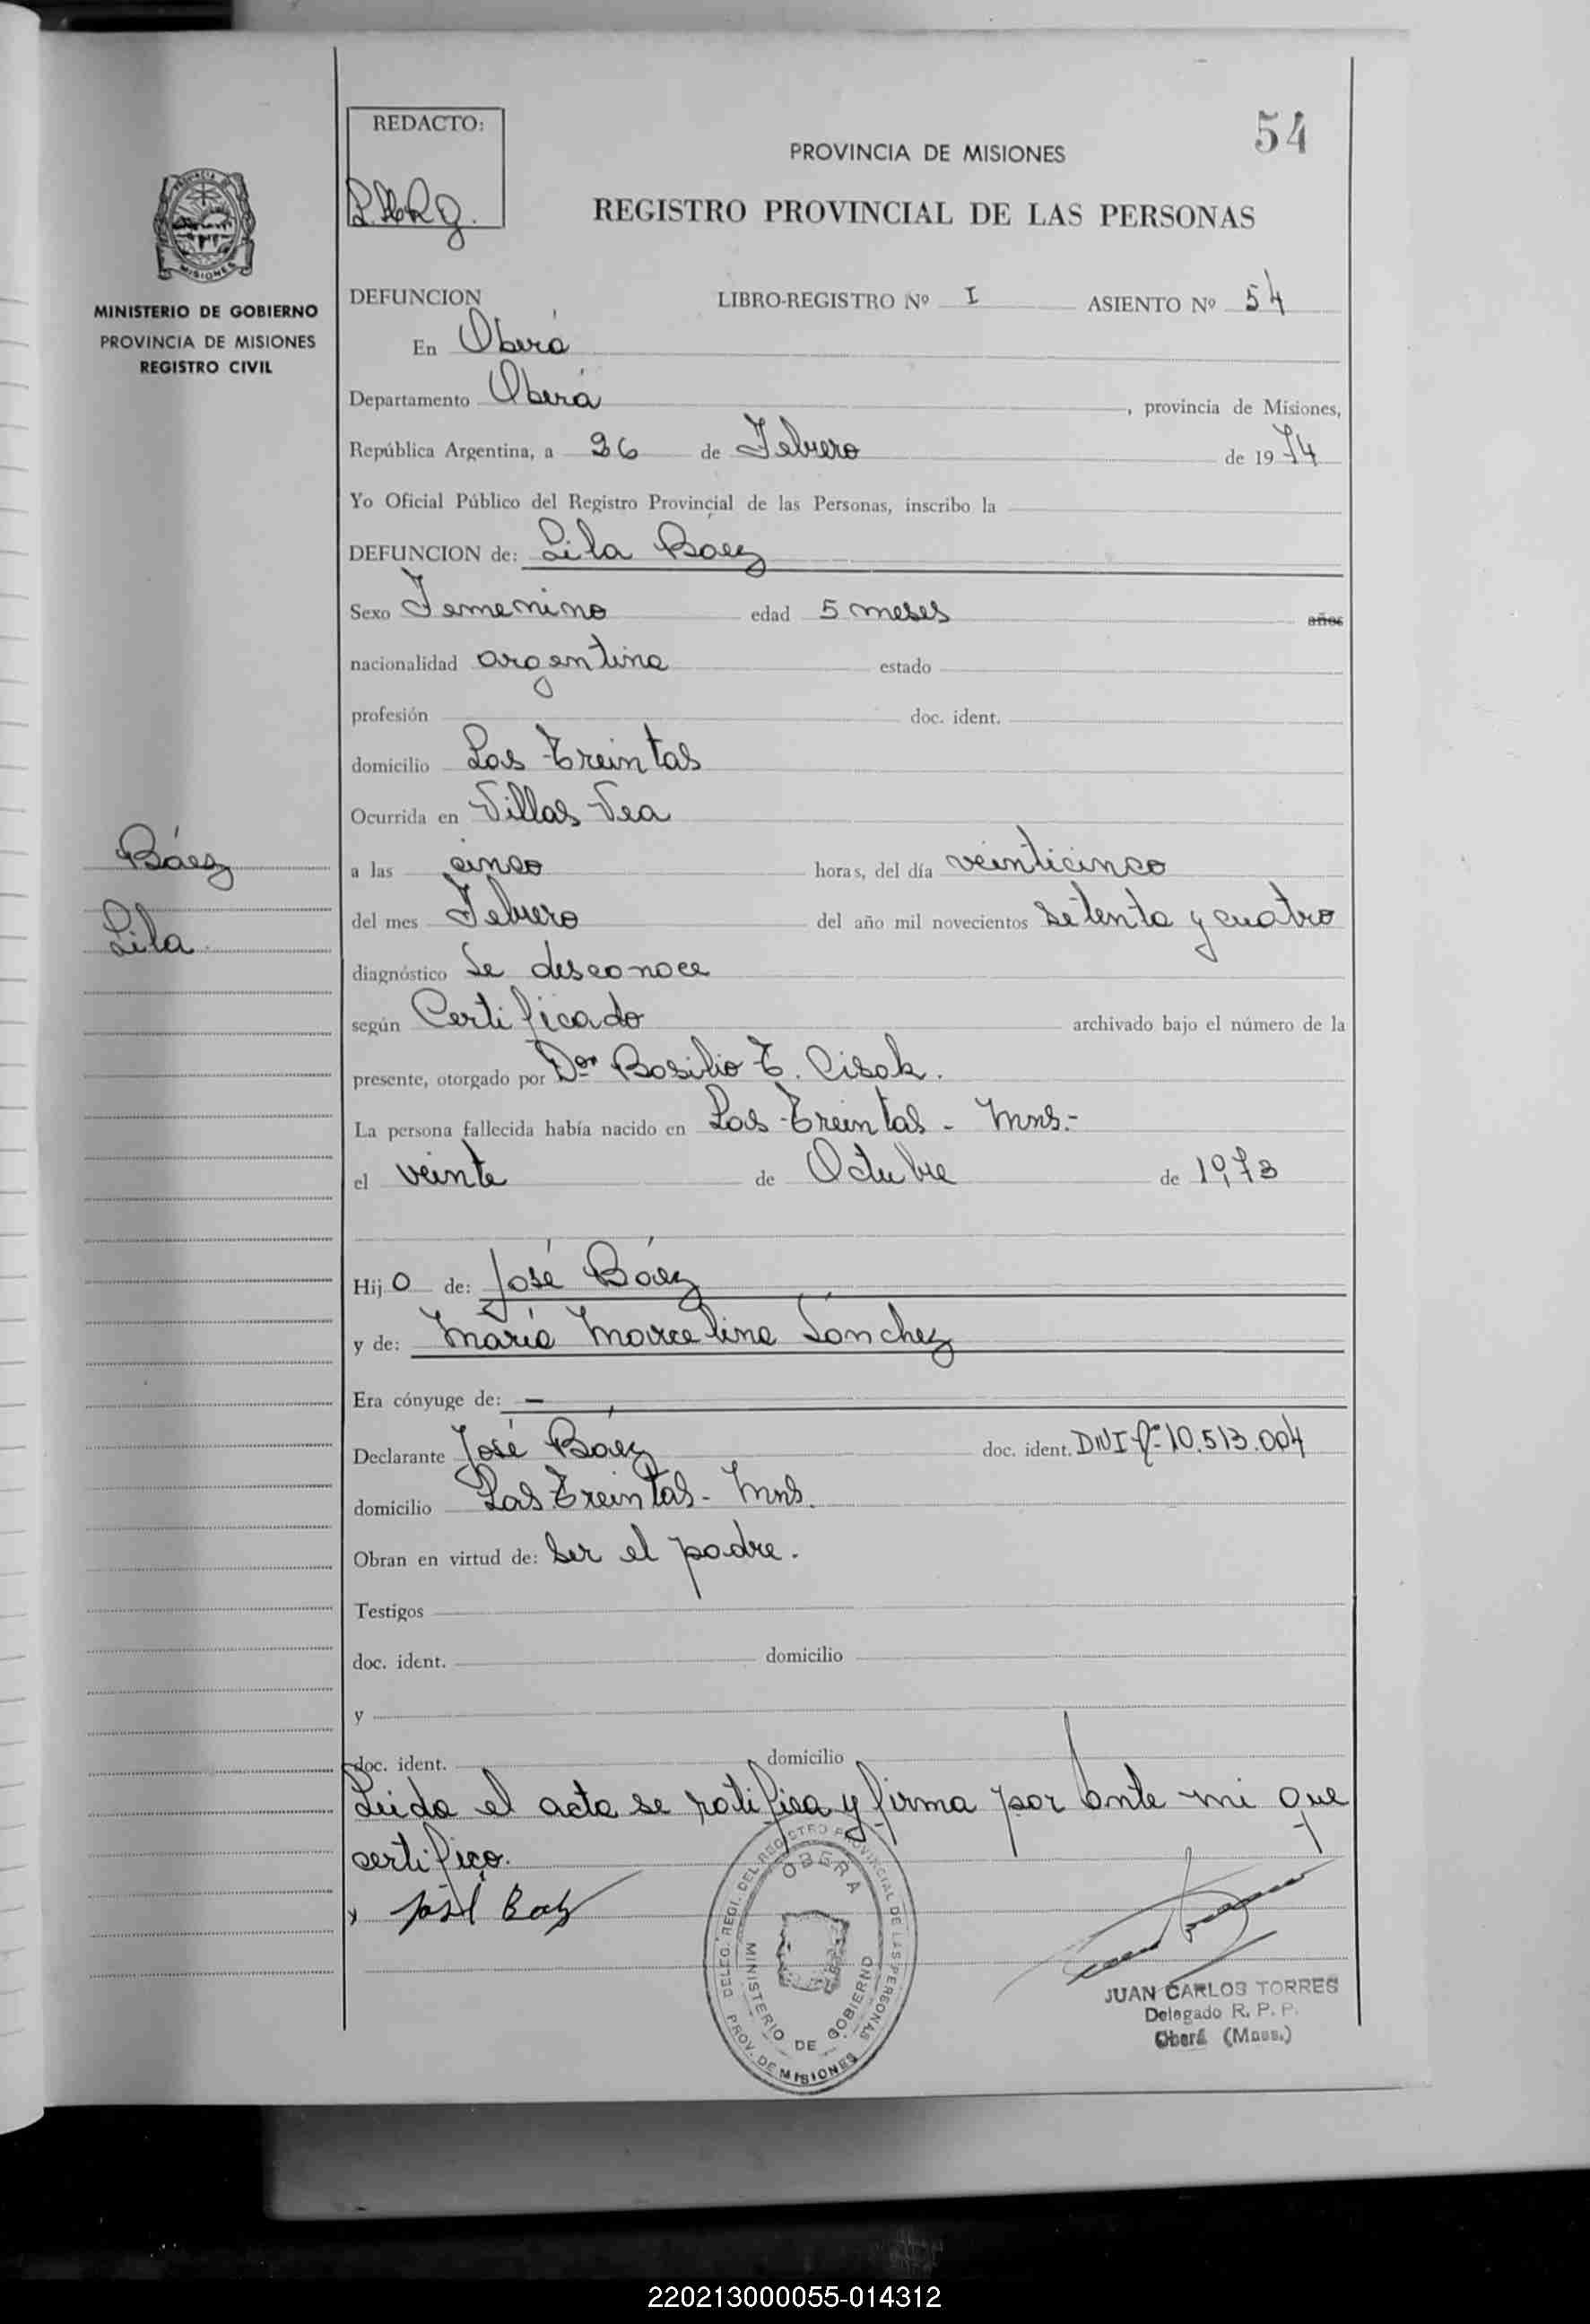 REDACTO:
54
PROVINCIA DE MISIONES
REGISTRO PROVINCIAL DE LAS PERSONAS
MISIONES
MINISTERIO DE GOBIERNO
PROVINCIA DE MISIONES
REGISTRO CIVIL
DEFUNCION LIBRO-REGISTRO Nº I ASIENTO Nº 54
En Oberá
Departamento Oberá, provincia de Misiones,
República Argentina, a 26 de Febrero de 1974
Yo Oficial Público del Registro Provincial de las Personas, inscribo la
DEFUNCION de: Lila Baez
Sexo Femenino edad 5 meses años
nacionalidad argentina estado
profesión doc. ident.
domicilio Los Treintas
Ocurrida en Villas Vea
Báez
a las cinco horas, del día veinticinco
Lila
del mes Febrero del año mil novecientos setenta y cuatro
diagnóstico Se desconoce
según Certificado archivado bajo el número de la
presente, otorgado por Dor Basilio T. Cisak.
La persona fallecida había nacido en Los Treintas - Mns.-
el veinte de Octubre de 1973
Hijo de: José Báez
y de: María Marcelina Sánchez
Era cónyuge de: —
Declarante José Báez doc. ident. DNI Nº 10.513.004
domicilio Los Treintas - Mns.
Obran en virtud de: Ser el padre.
Testigos
doc. ident. domicilio
y
doc. ident. domicilio
Leida el acta se ratifica y firma por ante mi que
certifico.
x José Baez
DELEG. REGI. DEL REGISTRO PROVINCIAL DE LAS PERSONAS
OBERA
MINISTERIO DE GOBIERNO
PROV. DE MISIONES
JUAN CARLOS TORRES
Delegado R. P. P.
Oberá (Mnes.)
220213000055-014312